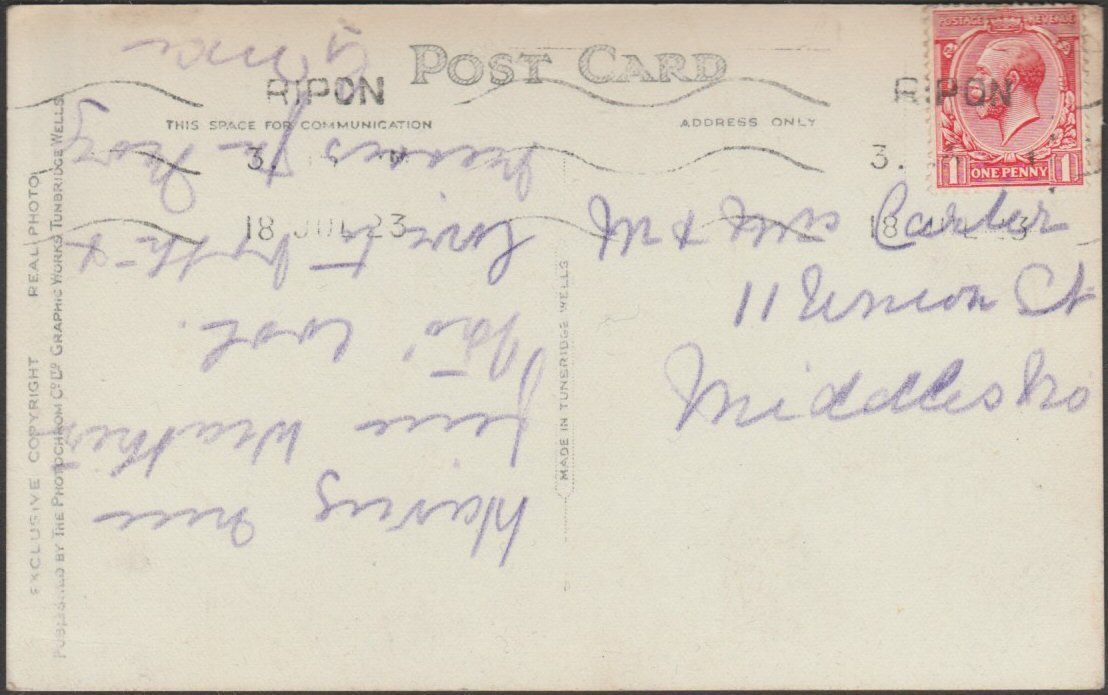 POST CARD
RIPON
RIPON
THIS SPACE FOR COMMUNICATION
ADDRESS ONLY
3.
3.
18 JUL 23
18 JUL 23
POSTAGE REVENUE
1 ONE PENNY 1
Mr & Mrs Carter
11 Union St
Middlesbro
Having nice
fine weather
cool.
love to both &
from
EXCLUSIVE COPYRIGHT REAL PHOTO
PUBLISHED BY THE PHOTOCHROM CO. LTD GRAPHIC WORKS TUNBRIDGE WELLS.
MADE IN TUNBRIDGE WELLS